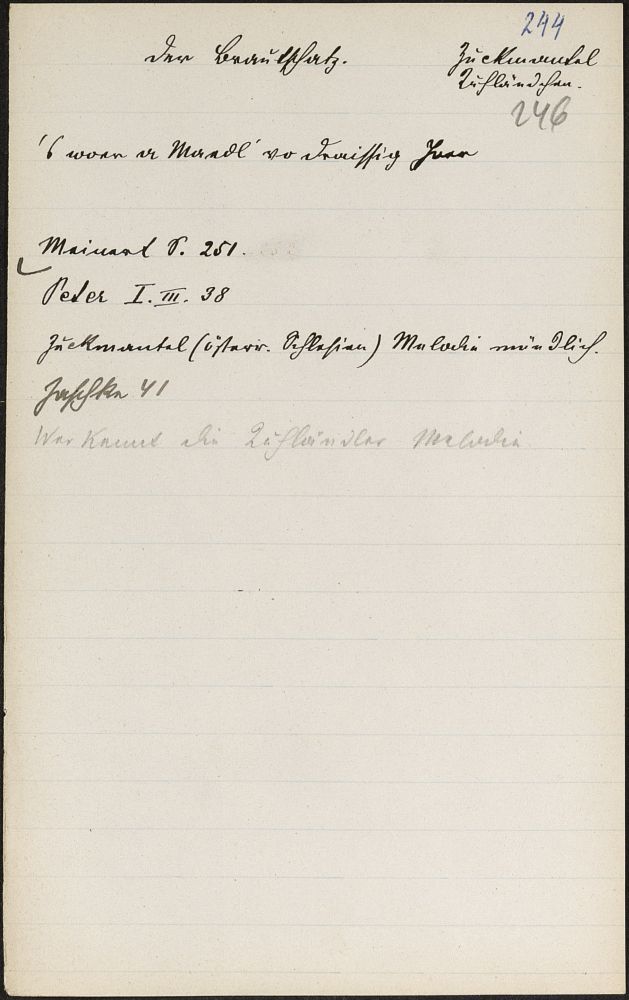 244
Der Brautschatz.
Zuckmantel
Kuhländchen.
246
's woer a Maedl vo draissig Joer
Meinert S. 251.
Peter I. III. 38
Zuckmantel (österr. Schlesien) Melodie mündlich.
Jaschke 41
Wer kennt die Kuhländler Melodie